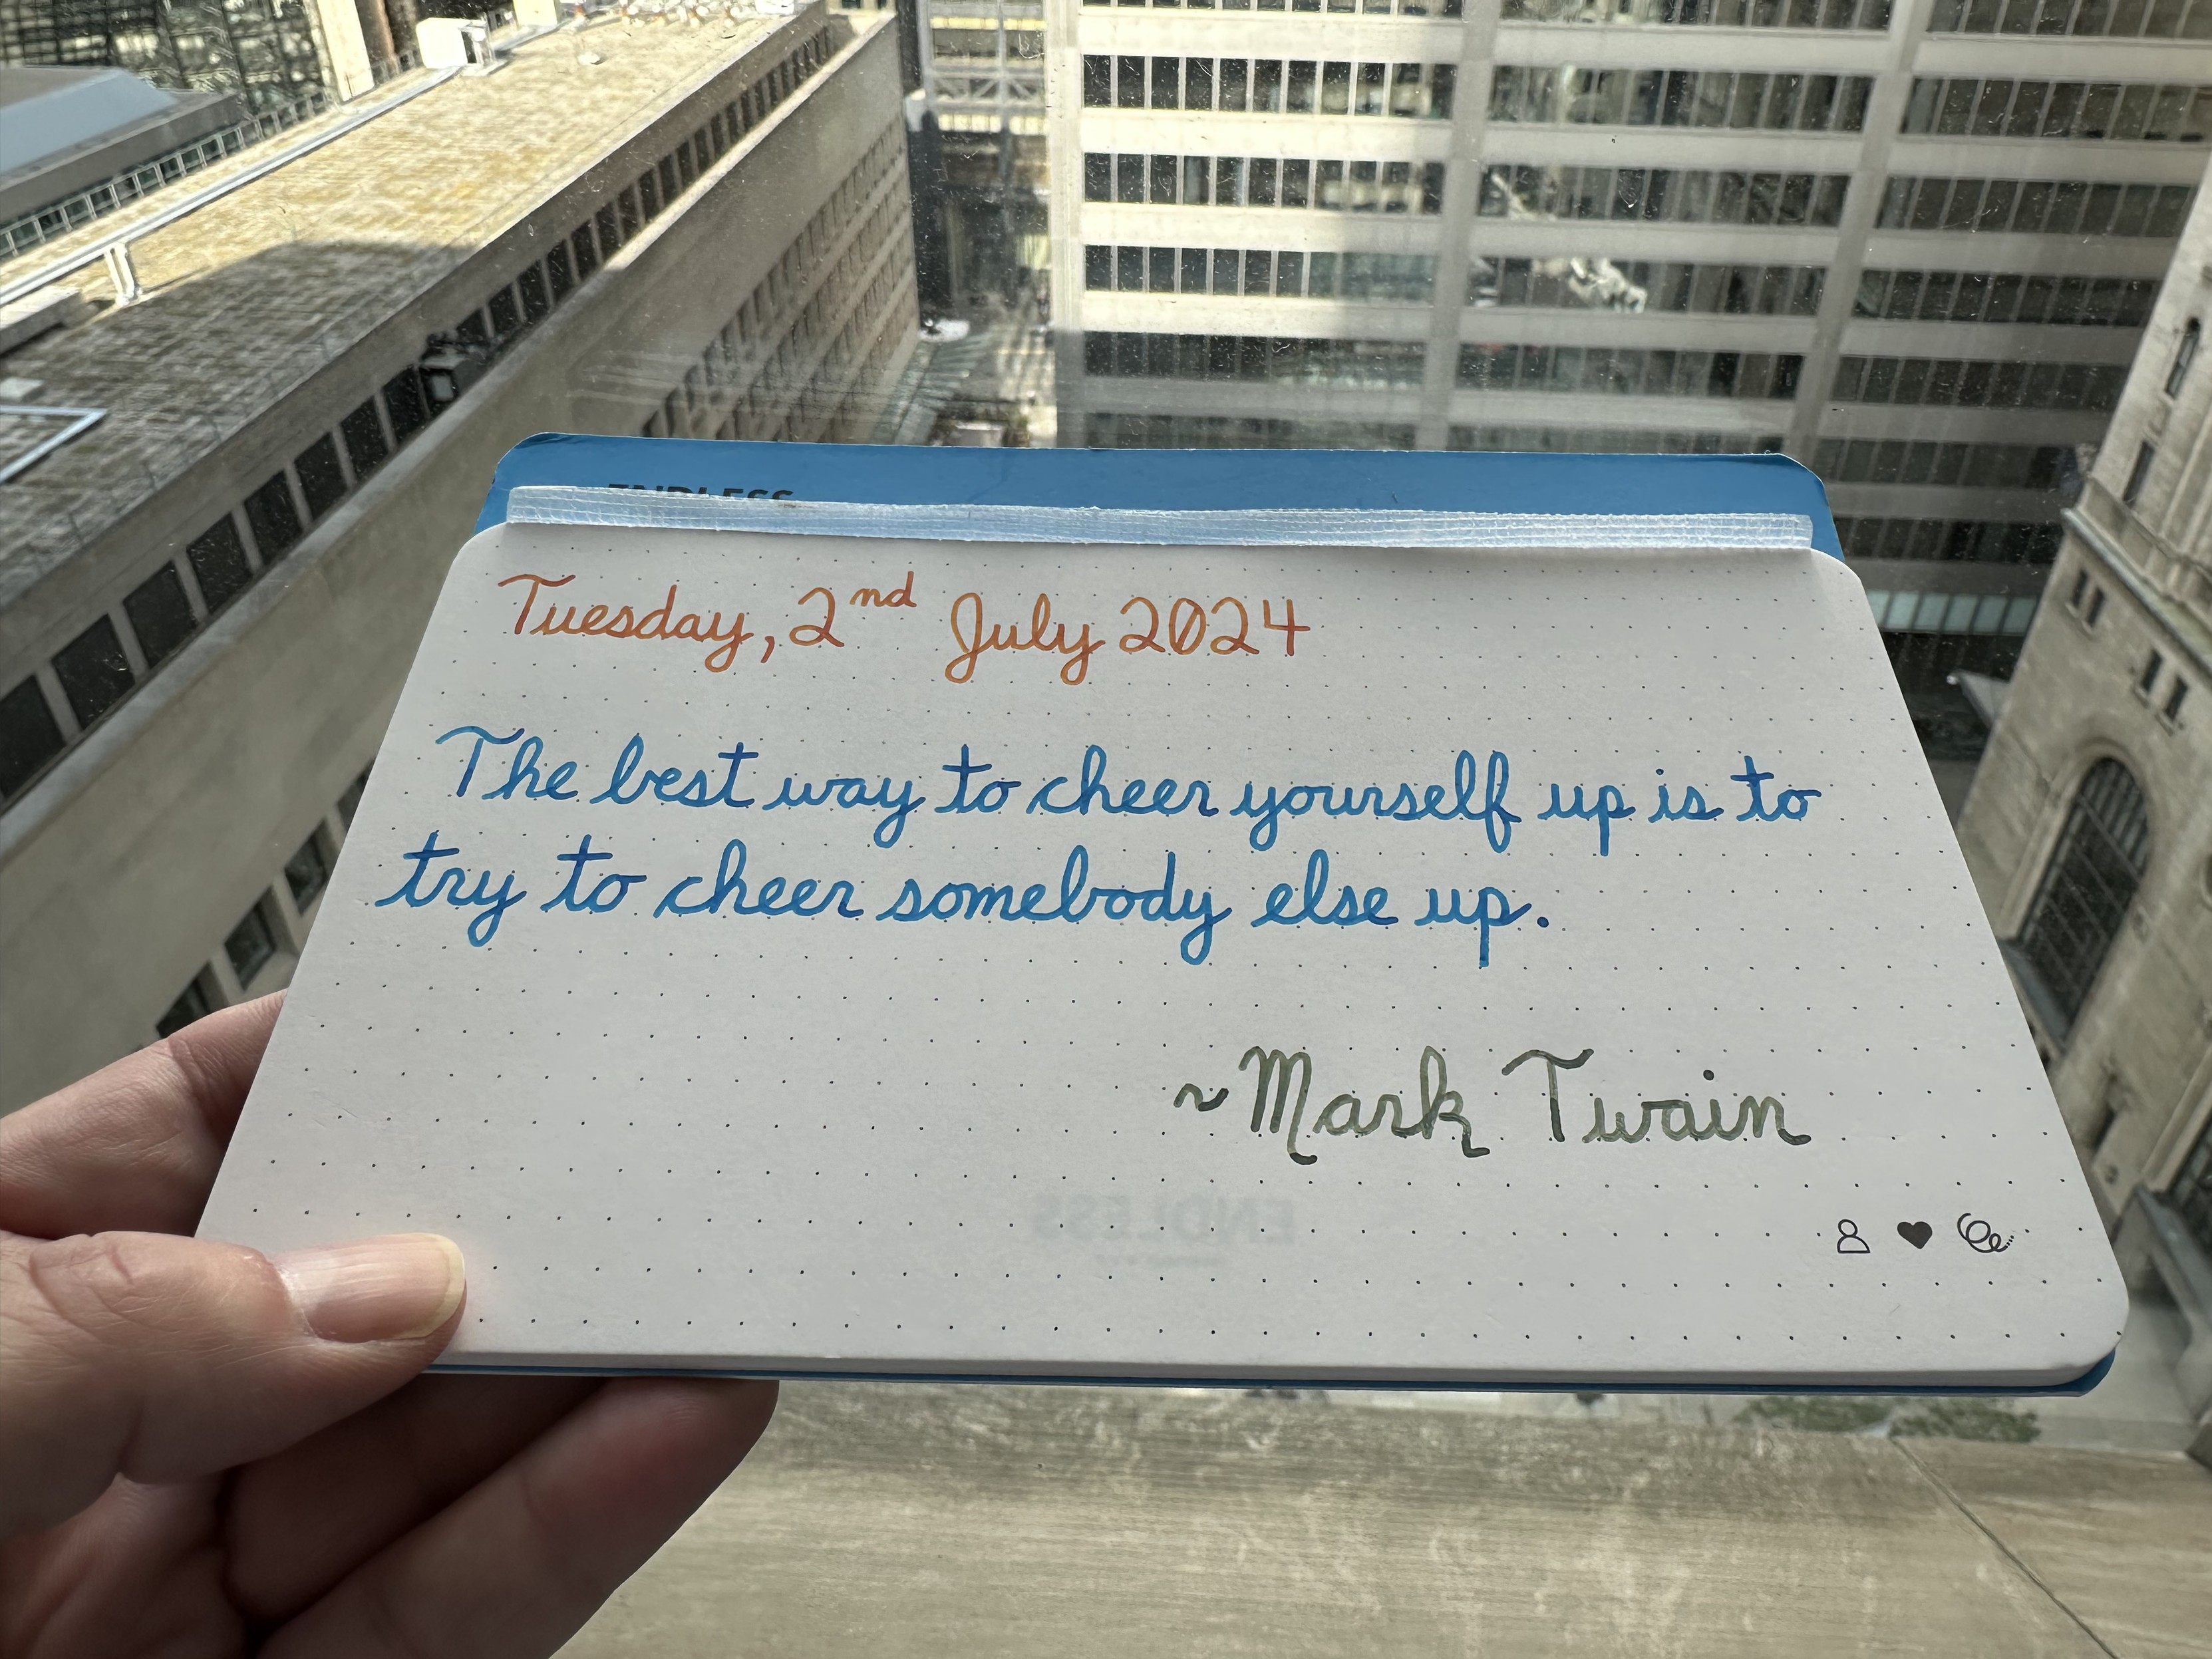 ENDLESS
Tuesday, 2nd July 2024
The best way to cheer yourself up is to
try to cheer somebody else up.
~Mark Twain
ENDLESS